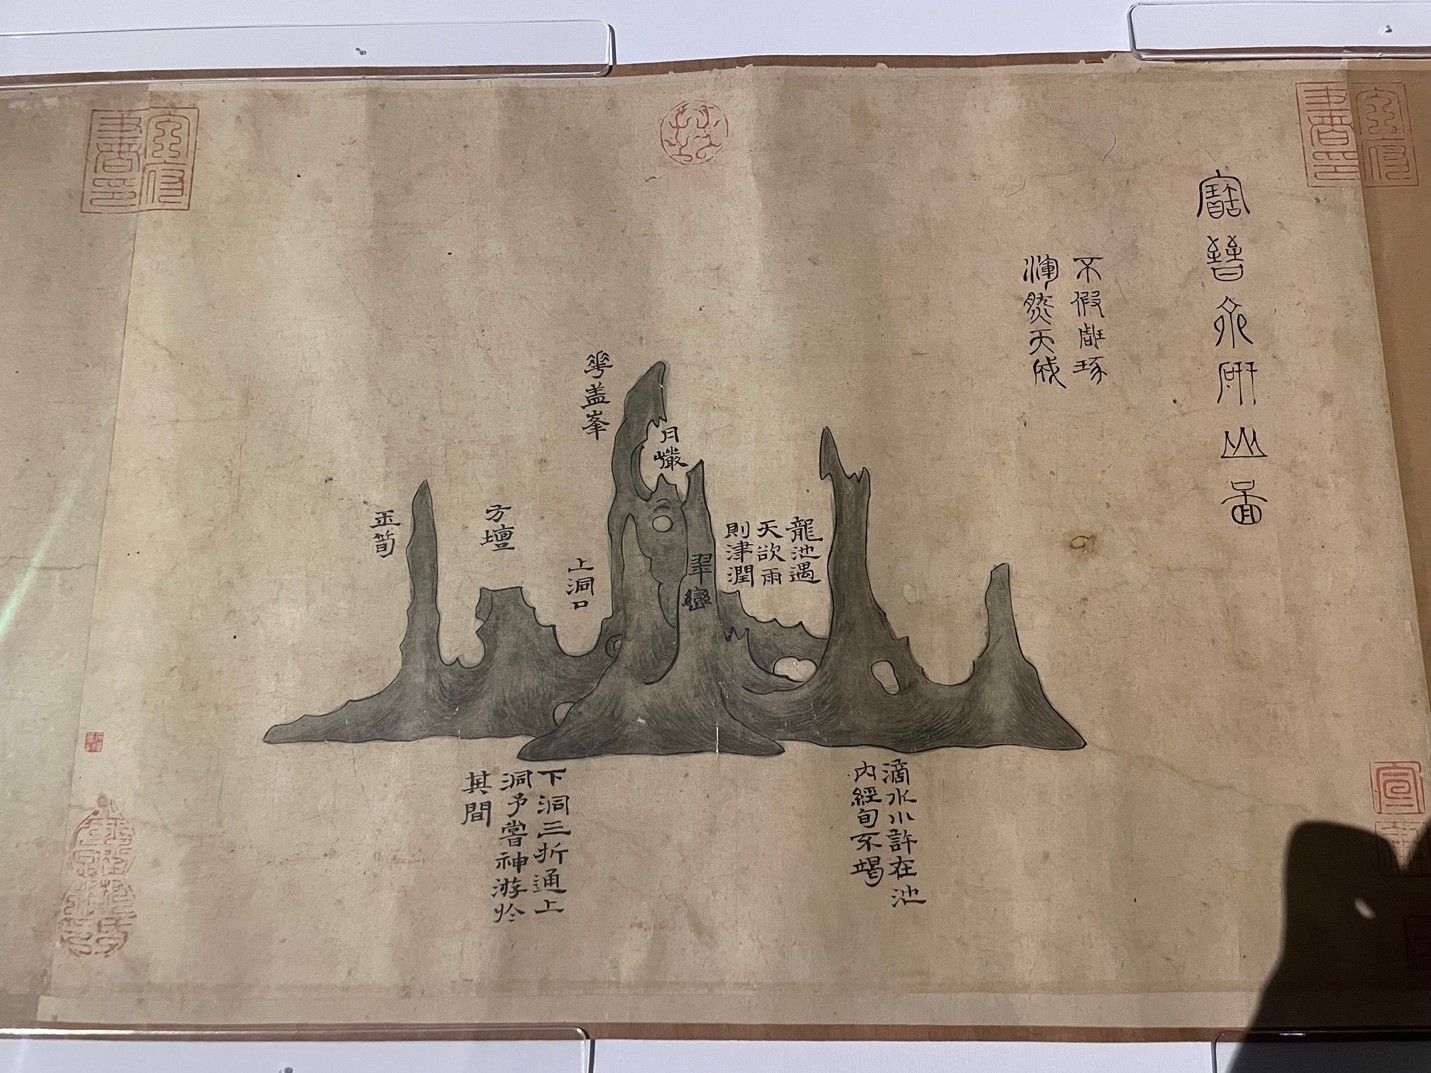 寶晉齋研山圖
不假雕琢
渾然天成
龍池遇
天欲雨
則津潤
月巖
翠巒
華盖峯
上洞口
方壇
玉筍
滴水小許在池
內經旬不竭
下洞三折通上
洞予嘗神游於
其間